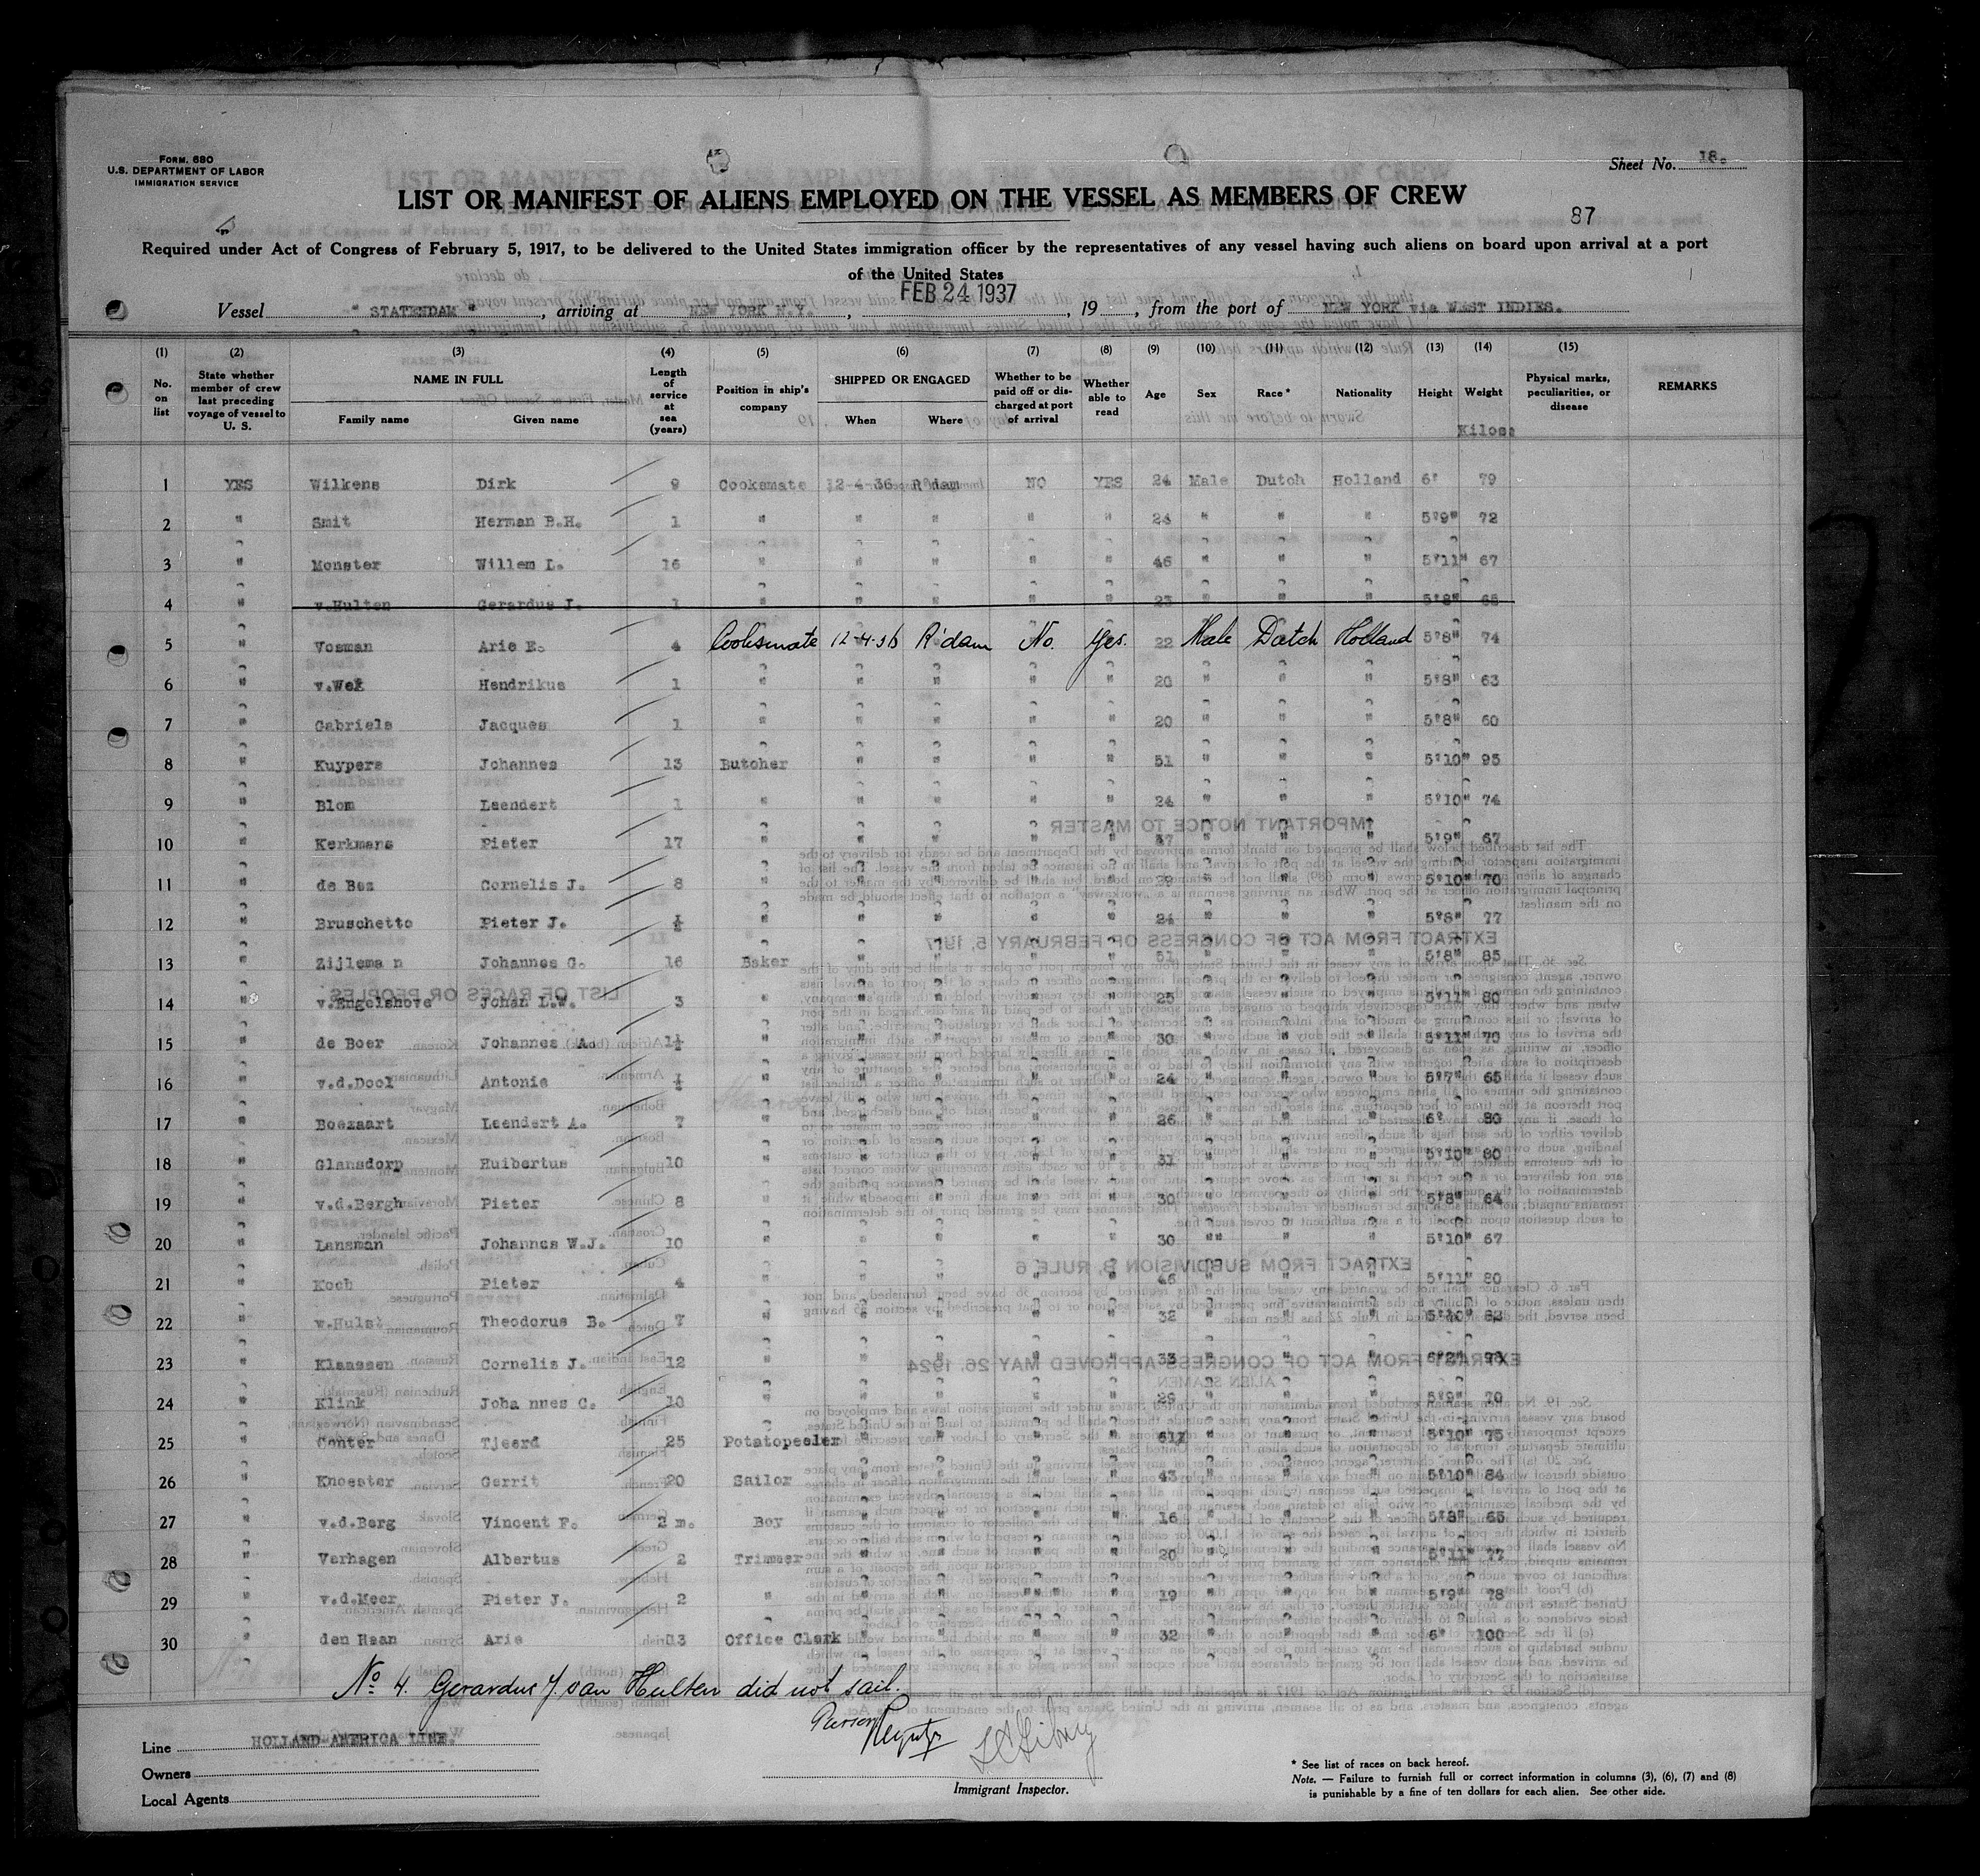 FORM. 680
U.S. DEPARTMENT OF LABOR
IMMIGRATION SERVICE
Sheet No. 18.
LIST OR MANIFEST OF ALIENS EMPLOYED ON THE VESSEL AS MEMBERS OF CREW
87
Required under Act of Congress of February 5, 1917, to be delivered to the United States immigration officer by the representatives of any vessel having such aliens on board upon arrival at a port
of the United States
FEB 24 1937
Vessel " STATENDAM ", arriving at NEW YORK N.Y., , 19 , from the port of NEW YORK via WEST INDIES.
(1) (2) (3) (4) (5) (6) (7) (8) (9) (10) (11) (12) (13) (14) (15)
No. on list State whether member of crew last preceding voyage of vessel to U. S. NAME IN FULL Family name Given name Length of service at sea (years) Position in ship's company SHIPPED OR ENGAGED When Where Whether to be paid off or discharged at port of arrival Whether able to read Age Sex Race* Nationality Height Weight Physical marks, peculiarities, or disease REMARKS
Kilos
1 YES Wilkens Dirk 9 Cooksmate 12-4-36 R'dam NO YES 24 Male Dutch Holland 6' 79
2 " Smit Herman B.H. 1 " " " " " 24 " " " 5'9" 72
3 " Monster Willem L. 16 " " " " " 46 " " " 5'11" 67
4 " v.Hulten Gerardus J. 1 " " " " " 23 " " " 5'8" 68
5 " Vosman Arie E. 4 Cooksmate 12-4-36 R'dam No. Yes. 22 Male Dutch Holland 5'8" 74
6 " v.Wek Hendrikus 1 " " " " " 20 " " " 5'8" 63
7 " Gabriels Jacques 1 " " " " " 20 " " " 5'8" 60
8 " Kuypers Johannes 13 Butcher " " " " 51 " " " 5'10" 95
9 " Blom Leendert 1 " " " " " 24 " " " 5'10" 74
10 " Kerkmans Pieter 17 " " " " " 47 " " " 5'9" 67
11 " de Bez Cornelis J. 8 " " " " " 29 " " " 5'10" 70
12 " Bruschetto Pieter J. ½ " " " " " 24 " " " 5'8" 77
13 " Zijleman Johannes G. 16 Baker " " " " 51 " " " 5'8" 85
14 " v.Engelshove Johan L.W. 3 " " " " " 25 " " " 5'11" 80
15 " de Boer Johannes A. 1½ " " " " " 30 " " " 5'11" 70
16 " v.d.Dool Antonie ½ " " " " " 24 " " " 5'7" 65
17 " Boezaart Leendert A. 7 " " " " " 26 " " " 6' 80
18 " Glansdorp Huibertus 10 " " " " " 31 " " " 5'10" 80
19 " v.d.Bergh Pieter 8 " " " " " 30 " " " 5'8" 64
20 " Lansman Johannes W.J. 10 " " " " " 30 " " " 5'10" 67
21 " Koch Pieter 4 " " " " " 46 " " " 5'11" 80
22 " v.Hulst Theodorus B. 7 " " " " " 32 " " " 5'10" 82
23 " Klaassen Cornelis J. 12 " " " " " 33 " " " 6'2" 98
24 " Klink Johannes C. 10 " " " " " 29 " " " 5'9" 70
25 " Conter Tjeerd 25 Potatopeeler " " " " 61 " " " 5'10" 75
26 " Knoester Gerrit 20 Sailor " " " " 43 " " " 5'10" 84
27 " v.d.Berg Vincent F. 2 m. Boy " " " " 16 " " " 5'8" 65
28 " Verhagen Albertus 2 Trimmer " " " " 20 " " " 5'11" 77
29 " v.d.Meer Pieter J. 2 " " " " " 19 " " " 5'9" 78
30 " den Haan Arie 13 Office Clerk " " " " 32 " " " 6' 100
No 4. Gerardus J. van Hulten did not sail.
Purser
Line HOLLAND AMERICA LINE.
Owners
Local Agents
Immigrant Inspector.
* See list of races on back hereof.
Note. — Failure to furnish full or correct information in columns (3), (6), (7) and (8)
is punishable by a fine of ten dollars for each alien. See other side.